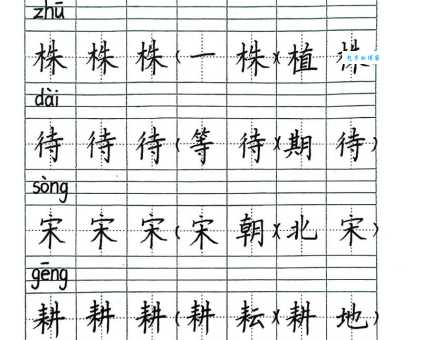 zhū
株 株 株(一 株)(植 株)
dài
待 待 待(等 待)(期 待)
sòng
宋 宋 宋(宋 朝)(北 宋)
gēng
耕 耕 耕(耕 耘)(耕 地)